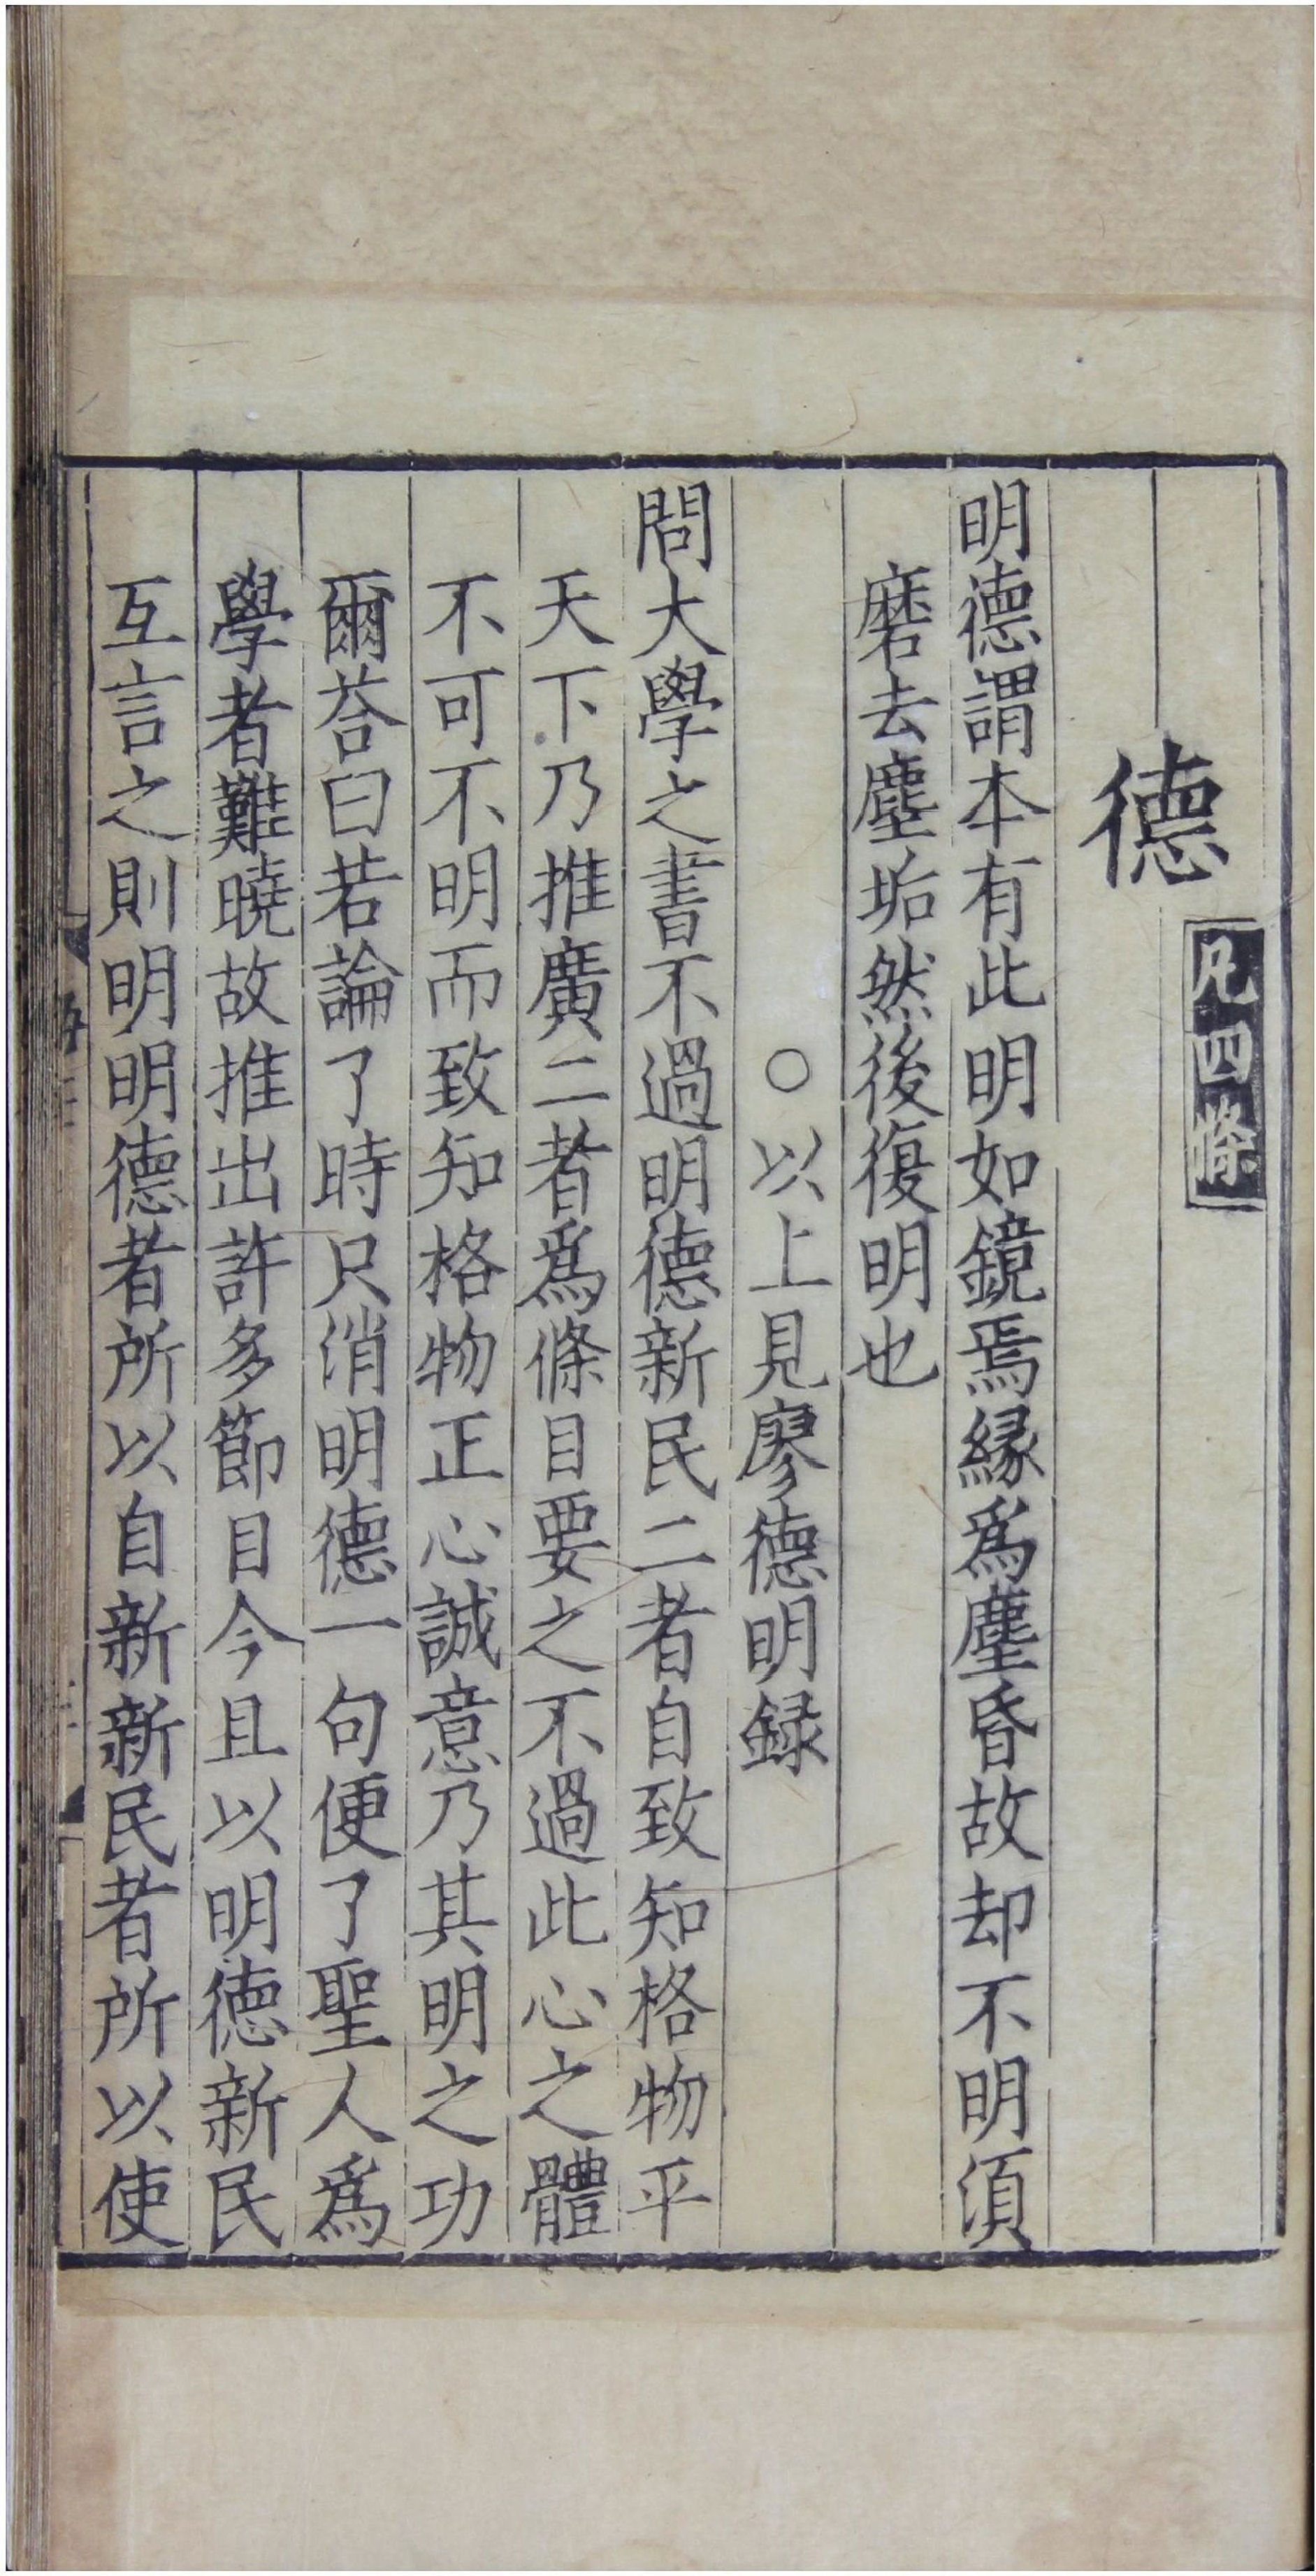 德
凡四條
明德謂本有此明如鏡焉緣爲塵昏故却不明須
磨去塵垢然後復明也
○以上見廖德明録
問大學之書不過明德新民二者自致知格物平
天下乃推廣二者爲條目要之不過此心之體
不可不明而致知格物正心誠意乃其明之功
爾荅曰若論了時只消明德一句便了聖人爲
學者難曉故推出許多節目今且以明德新民
互言之則明明德者所以自新新民者所以使